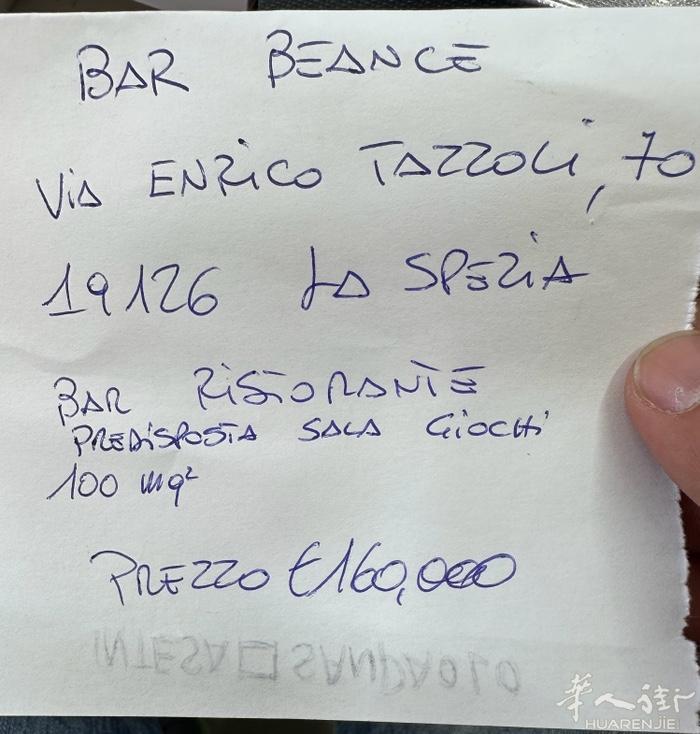 BAR BEANCE
VIA ENRICO TAZZOLI, 70
19126 LA SPEZIA
BAR RISTORANTE
PREDISPOSTA SALA GIOCHI
100 mq²
PREZZO €160,000
INTESA SANPAOLO
華人街
HUARENJIE